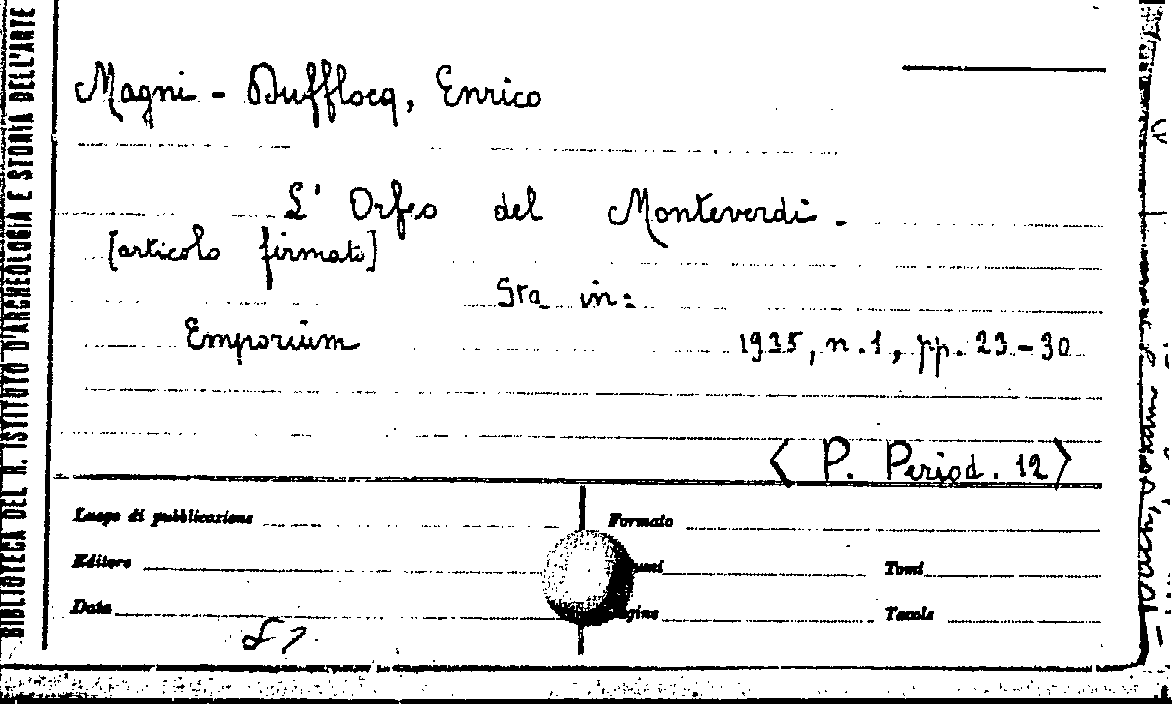 BIBLIOTECA DEL R. ISTITUTO D'ARCHEOLOGIA E STORIA DELL'ARTE
Magni - Dufflocq, Enrico
L' Orfeo del Monteverdi.
[articolo firmato]
Sta in:
Emporium 1935, n.1, pp. 23-30
< P. Period. 12 >
Luogo di pubblicazione Formato
Editore Tomi
Data Tavole